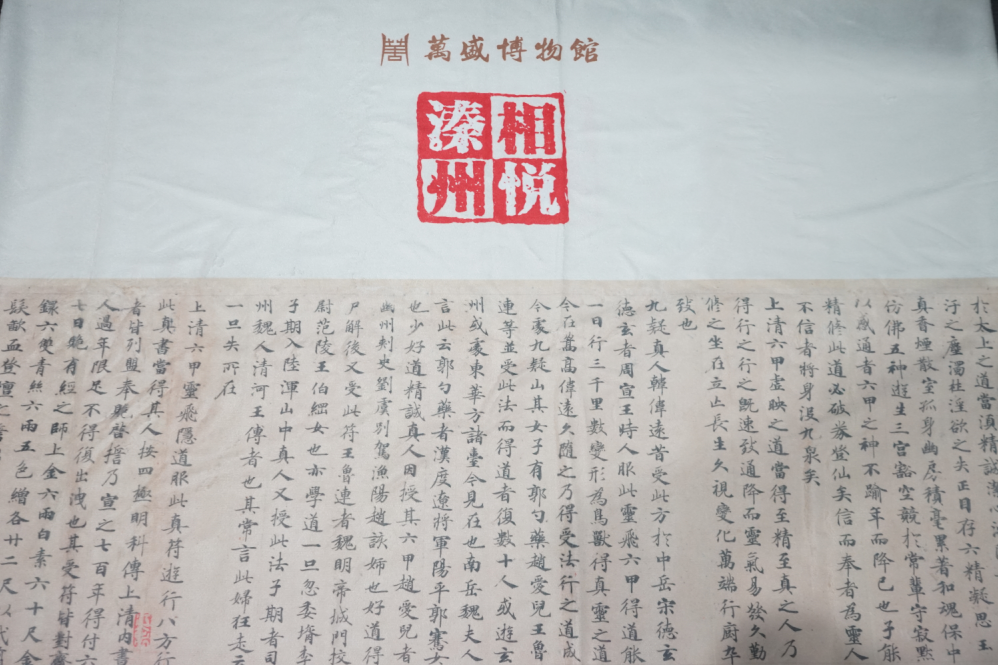 萬盛博物館
相悦
溱州
於太上之道當湏精謐潛心
汙之塵濁杜淫欲之失正目存六精凝思王
真香煙散空孤身幽房積毫累著和魂保中
彷彿五神遊生三宮豁空競於常輩守寂默
以感通者六甲之神不踰年而降已也子能
精修此道必破券登仙矣信而奉者為靈人
不信者將身沒九泉矣
上清六甲虛映之道當得至精至真之人乃
得行之行之既速致通降而靈氣易發久勤
修之坐在立亡長生久視變化萬端行廚卒
致也
九疑真人韓偉遠昔受此方於中岳宋德玄
德玄者周宣王時人服此靈飛六甲得道能
一日行三千里數變形為鳥獸得真靈之道
今在嵩高偉遠久隨之乃得受法行之道成
今處九疑山其女子有郭勺藥趙愛兒王魯
連等並受此法而得道者復數十人或遊玄
州或處東華方諸臺今見在也南岳魏夫人
言此云郭勺藥者漢度遼將軍陽平郭騫女
也少好道精誠真人因授其六甲趙愛兒者
幽州刺史劉虞別駕漁陽趙該姊也好道得
尸解後又受此符王魯連者魏明帝城門校
尉范陵王伯綱女也亦學道一旦忽委壻李
子期入陸渾山中真人又授此法子期者司
州魏人清河王傳者也其常言此婦狂走云
一旦失所在
上清六甲靈飛隱道服此真符遊行八方行
此真書當得其人按四極明科傳上清內書
者皆列盟奉贄啓誓乃宣之七百年得付六
人過年限足不得復出洩也其受符皆對齋
七日有經之師上金六兩白素六十尺金
鐶六雙青絲六兩五色繒各廿二尺以代
髮歃血登壇之